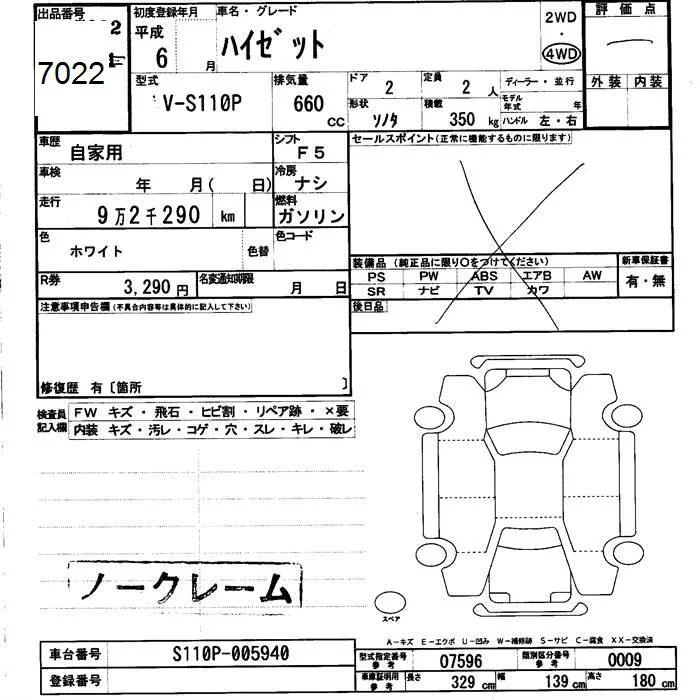 出品番号 2
7022
初度登録年月
平成 6 月
車名・グレード
ハイゼット
2WD
・
4WD
評価点
外装 内装
型式
V-S110P
排気量
660 CC
ドア
2
定員
2 人
ディーラー・並行
形状
ソノタ
積載
350 kg
モデル年式 年
ハンドル 左・右
車歴
自家用
シフト
F5
セールスポイント(正常に機能するものに限ります)
車検
年 月( 日)
冷房
ナシ
走行
9万2千290 km
燃料
ガソリン
色
ホワイト
色替
色コード
装備品(純正品に限り○をつけてください)
新車保証書
PS PW ABS エアB AW
有・無
SR ナビ TV カワ
R券
3,290円
名変通知期限
月 日
後日品
注意事項申告欄(不具合内容等は具体的に記入して下さい)
修復歴 有〔箇所 〕
検査員記入欄
FW キズ・飛石・ヒビ割・リペア跡・×要
内装 キズ・汚レ・コゲ・穴・スレ・キレ・破レ
ノークレーム
スペア
A-キズ E-エクボ U-凹み W-補修跡 S-サビ C-腐食 XX-交換済
車台番号
S110P-005940
型式指定番号
参考
07596
類別区分番号
参考
0009
登録番号
車庫証明用
参考
長さ
329 cm
幅
139 cm
高さ
180 cm